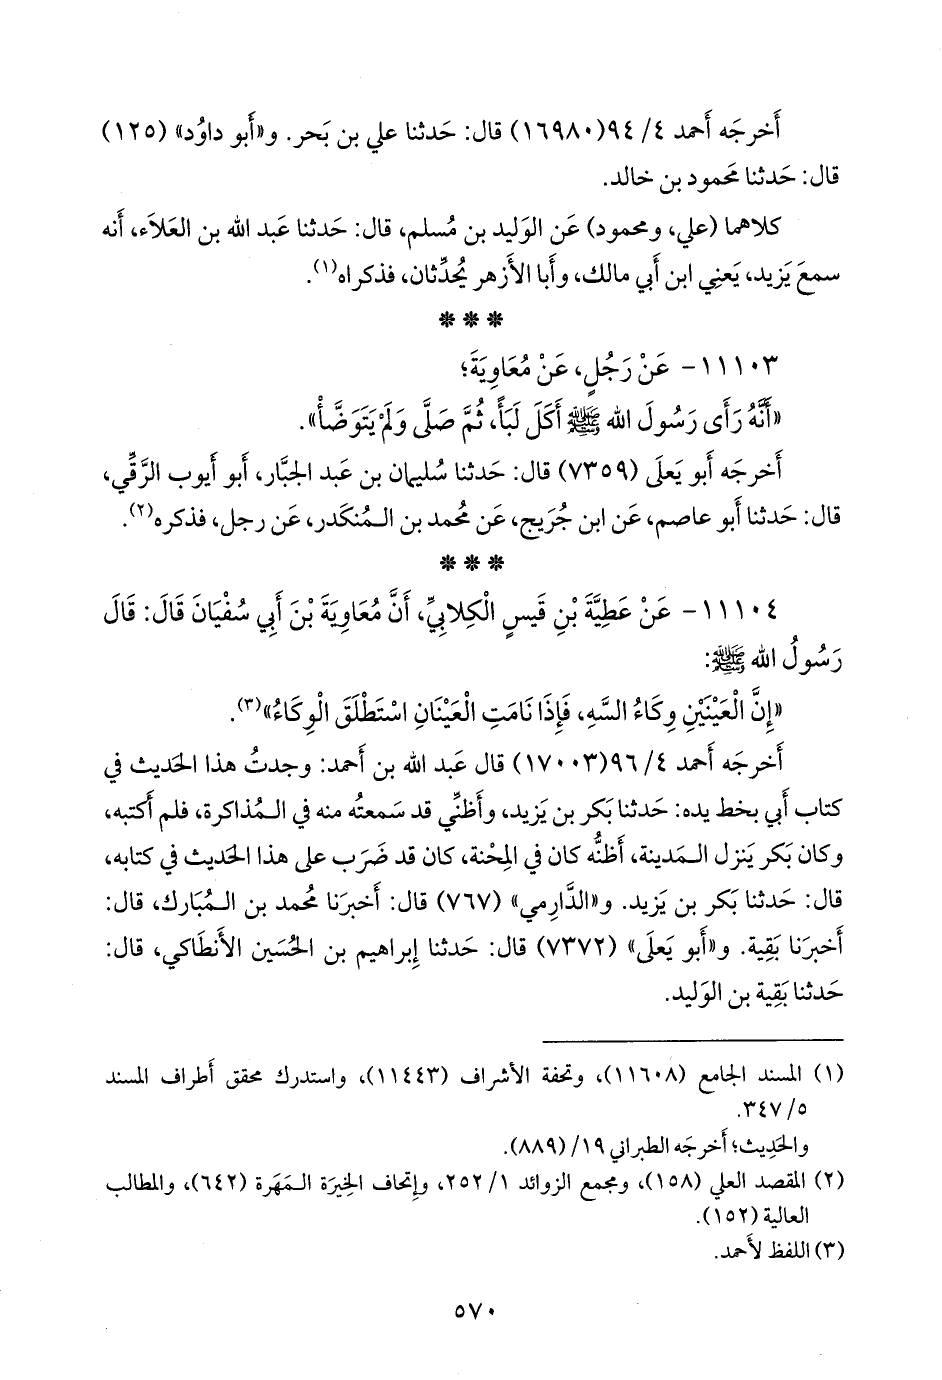 أَخرجَه أَحمد ٤/ ٩٤(١٦٩٨٠) قال: حَدثنا علي بن بَحر. و«أَبو داوُد» (١٢٥)
قال: حَدثنا مَحمود بن خالد.
كلاهما (علي، ومحمود) عَن الوَليد بن مُسلم، قال: حَدثنا عَبد الله بن العَلاَء، أَنه
سمعَ يَزيد، يَعنِي ابن أَبي مالك، وأَبا الأَزهر يُحدِّثان، فذكراه(١).
* * *
١١١٠٣- عَنْ رَجُلٍ، عَنْ مُعَاوِيَةَ؛
«أَنَّهُ رَأَى رَسُولَ الله ﷺ أَكَلَ لَبَأً، ثُمَّ صَلَّى وَلَمْ يَتَوَضَّأْ».
أَخرجَه أَبو يَعلَى (٧٣٥٩) قال: حَدثنا سُليمان بن عَبد الجَبَّار، أَبو أَيوب الرَّقِّي،
قال: حَدثنا أَبو عاصم، عَن ابن جُرَيج، عَن مُحمد بن الـمُنكَدر، عَن رجل، فذكره(٢).
* * *
١١١٠٤- عَنْ عَطِيَّةَ بْنِ قَيسٍ الْكِلابِيِّ، أَنَّ مُعَاوِيَةَ بْنَ أَبِي سُفْيَانَ قَالَ: قَالَ
رَسُولُ الله ﷺ:
«إِنَّ الْعَيْنَيْنِ وِكَاءُ السَّهِ، فَإِذَا نَامَتِ الْعَيْنَانِ اسْتَطْلَقَ الْوِكَاءُ»(٣).
أَخرجَه أَحمد ٤/ ٩٦(١٧٠٠٣) قال عَبد الله بن أَحمد: وجدتُ هذا الحَديث في
كتاب أَبي بخط يده: حَدثنا بَكر بن يَزيد، وأَظنِّي قد سَمعتُه منه في الـمُذاكرة، فلم أَكتبه،
وكان بَكر يَنزل الـمَدينة، أَظنُّه كان في المِحْنة، كان قد ضَرَب على هذا الحَديث في كتابه،
قال: حَدثنا بَكر بن يَزيد. و«الدَّارِمي» (٧٦٧) قال: أَخبرَنا مُحمد بن الـمُبارك، قال:
أَخبرَنا بَقِية. و«أَبو يَعلَى» (٧٣٧٢) قال: حَدثنا إِبراهيم بن الحُسَين الأَنطَاكي، قال:
حَدثنا بَقِية بن الوَليد.
(١) المسند الجامع (١١٦٠٨)، وتحفة الأشراف (١١٤٤٣)، واستدرك محقق أطراف المسند
٥/ ٣٤٧.
والحَدِيث؛ أَخرجَه الطبراني ١٩/ (٨٨٩).
(٢) المقصد العلي (١٥٨)، ومجمع الزوائد ١/ ٢٥٢، وإتحاف الخِيرَة الـمَهَرة (٦٤٢)، والمطالب
العالية (١٥٢).
(٣) اللفظ لأَحمد.
٥٧٠